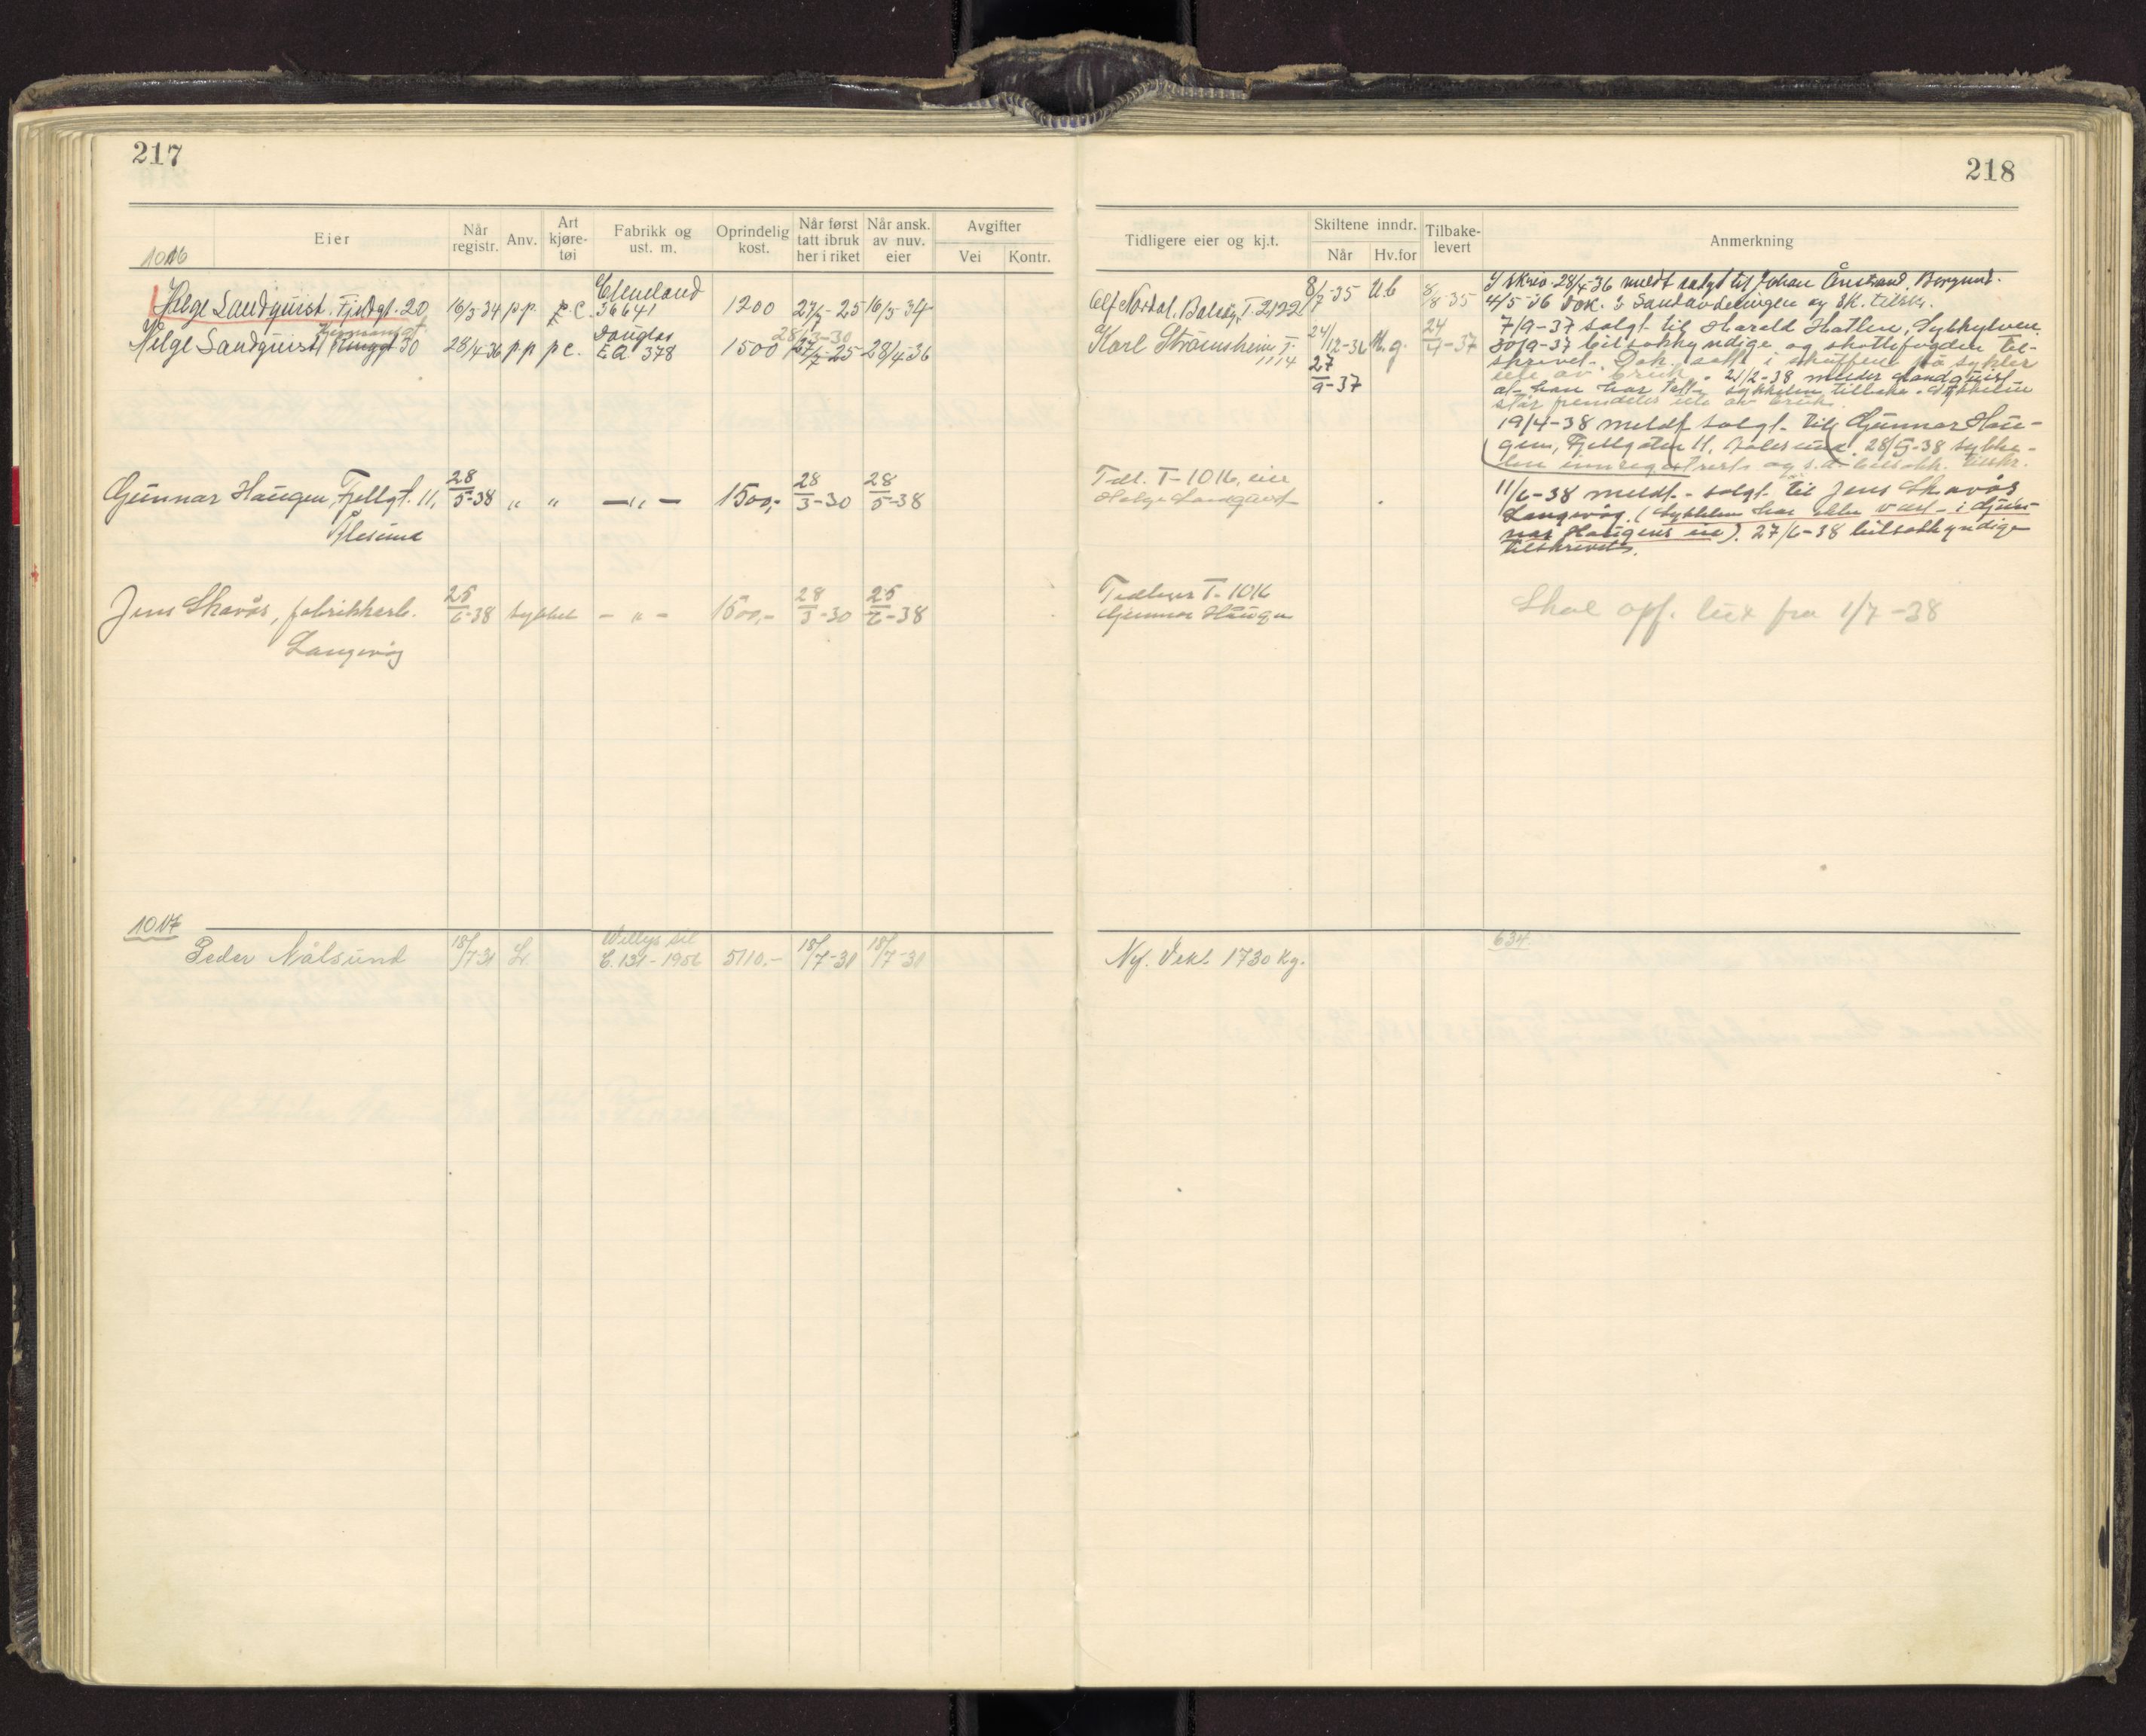 217
Eier
Når registr.
Anv.
Art kjøre- tøi
Fabrikk og ust. m.
Oprindelig kost.
Når først tatt ibruk her i riket
Når ansk. av nuv. eier
Avgifter
Vei
Kontr.
1016
Helge Sandquist. Fjeldgt. 20 16/3-34 p.p. p.c. Cleveland 36641 1200 27/7-25 16/3-34
Helge Sandquist 30 28/4-36 pp pc. Douglas EA 378 1500 28/3-30 27/7-25 28/4-36
Gunnar Haugen, Fjellgt. 11, 28/5-38 „ „ —„— 1500,- 28/3-30 28/5-38
Ålesund
Jens Skavås, fabrikkarb. 25/6-38 sykkel -„- 1500,- 28/3-30 25/6-38
Langevåg
1017
Peder Målsund 18/7-31 L. Willys sil C. 131-1956 5110.- 18/7-31 18/7-31
218
Tidligere eier og kj.t.
Skiltene inndr.
Når
Hv.for
Tilbake- levert
Anmerkning
Alf Nordal. T 2122 8/7-35 U.b 8/8-35
Karl Strømsheim T. 1114 24/12-36 M.g. 24/4-37
27/9-37
I skriv 28/4-36 meldt solgt til Johan Ånstrand, Borgund.
4/5-36 Dok. t. Sandavdelingen og sk. tilskr.
7/9-37 solgt til Harald Hatlen, Sykkylven.
30/9-37 bilsakkyndige og skattefogden til-
skrevet. Dok. satt i skuffene på sykler
ute av bruk. 21/2-38 melder Sandquist
at han har tatt sykkelen tilbake. Sykkelen
står fremdeles ute av bruk.
19/4-38 meldt solgt til Gunnar Hau-
gen, Fjellgaten 11, Ålesund. 28/5-38 sykke-
len innregistrert og s.d. bilsakk. tilskr.
Tidl. T-1016, eier
Helge Sandquist
11/6-38 meldt solgt til Jens Skavås
Langevåg. (Sykkelen har ikke vært i Gun-
nar Haugens eie). 27/6-38 bilsakkyndige
tilskrevet.
Tidligere T-1016
Gunnar Haugen
Skal opf. fra 1/7-38
634
Ny. Vekt 1730 kg.